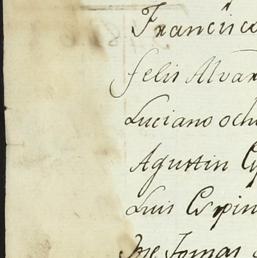 Francisco
felis Alvar
Luciano ochu
Agustin Es
Luis Espin
Jose Tomas